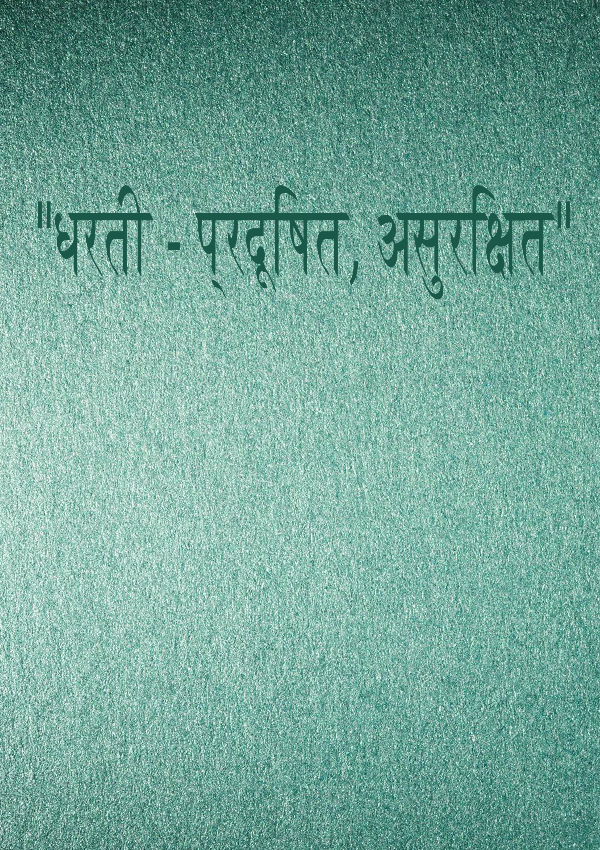 "धरती - प्‌रदूषित, असुरक्षित"